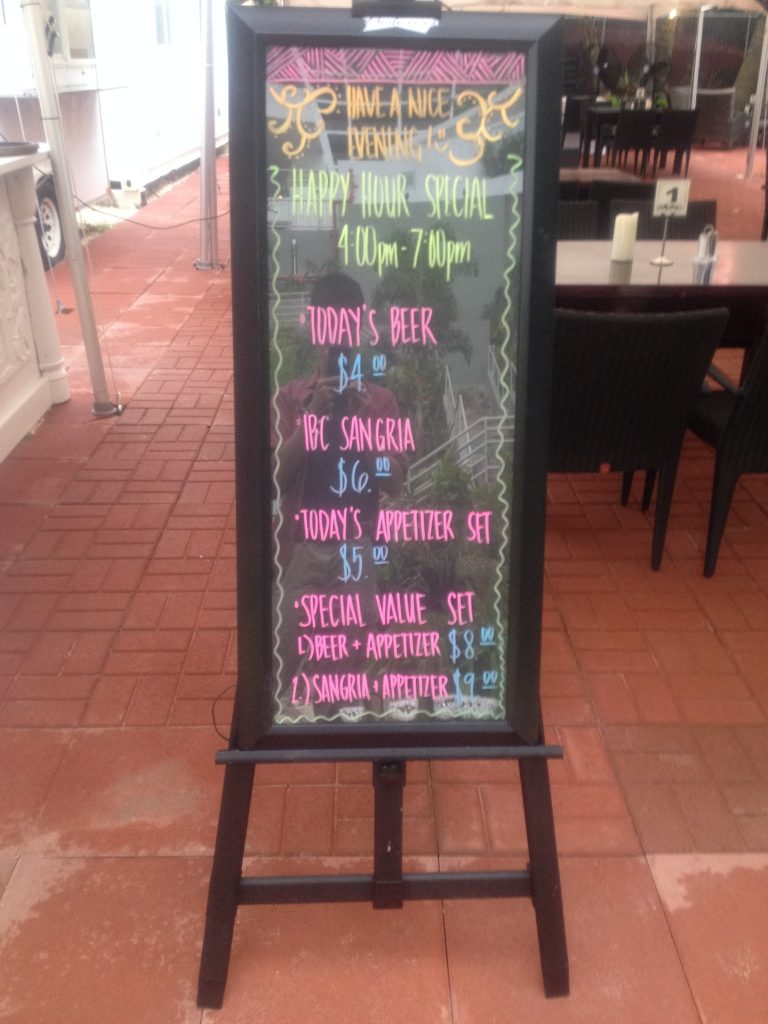 HAVE A NICE
EVENING! :)
HAPPY HOUR SPECIAL
4:00pm - 7:00pm
• TODAY'S BEER
$4.00
• IBC SANGRIA
$6.00
• TODAY'S APPETIZER SET
$5.00
• SPECIAL VALUE SET
1.) BEER + APPETIZER $8.00
2.) SANGRIA + APPETIZER $9.00
1